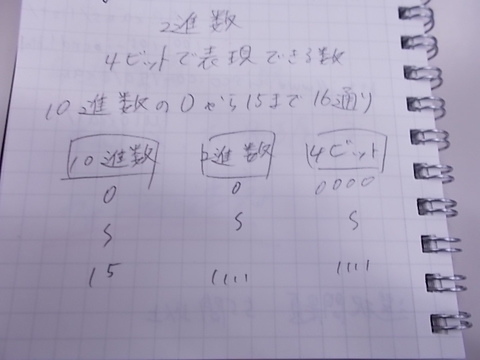 2進数
4ビットで表現できる数
10進数の0から15まで16通り
10進数 2進数 4ビット
0 0 0000
S S S
15 1111 1111